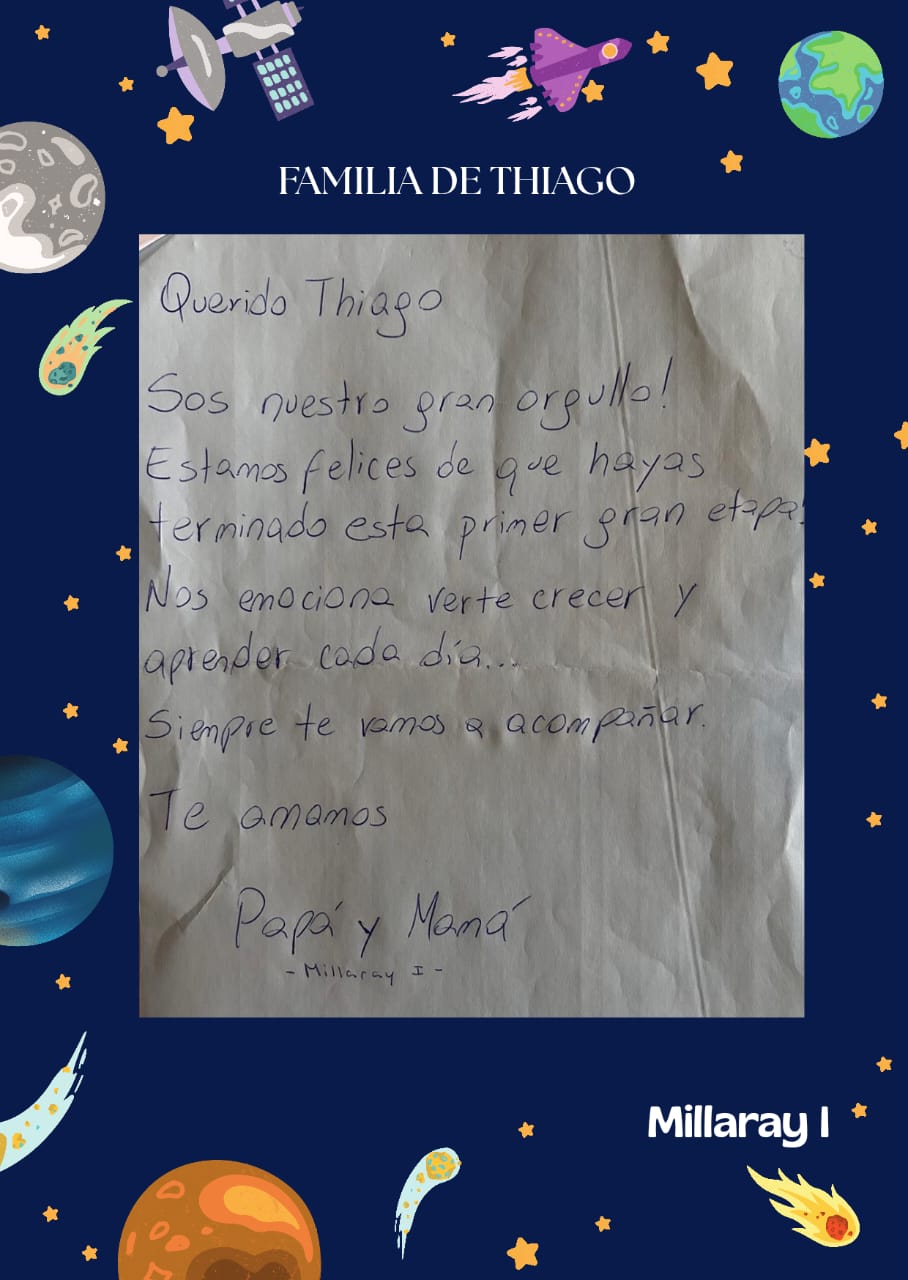 FAMILIA DE THIAGO
Querido Thiago
Sos nuestro gran orgullo!
Estamos felices de que hayas
terminado esta primer gran etapa!
Nos emociona verte crecer y
aprender cada día...
Siempre te vamos a acompañar.
Te amamos
Papá y Mamá
- Millaray I -
Millaray I